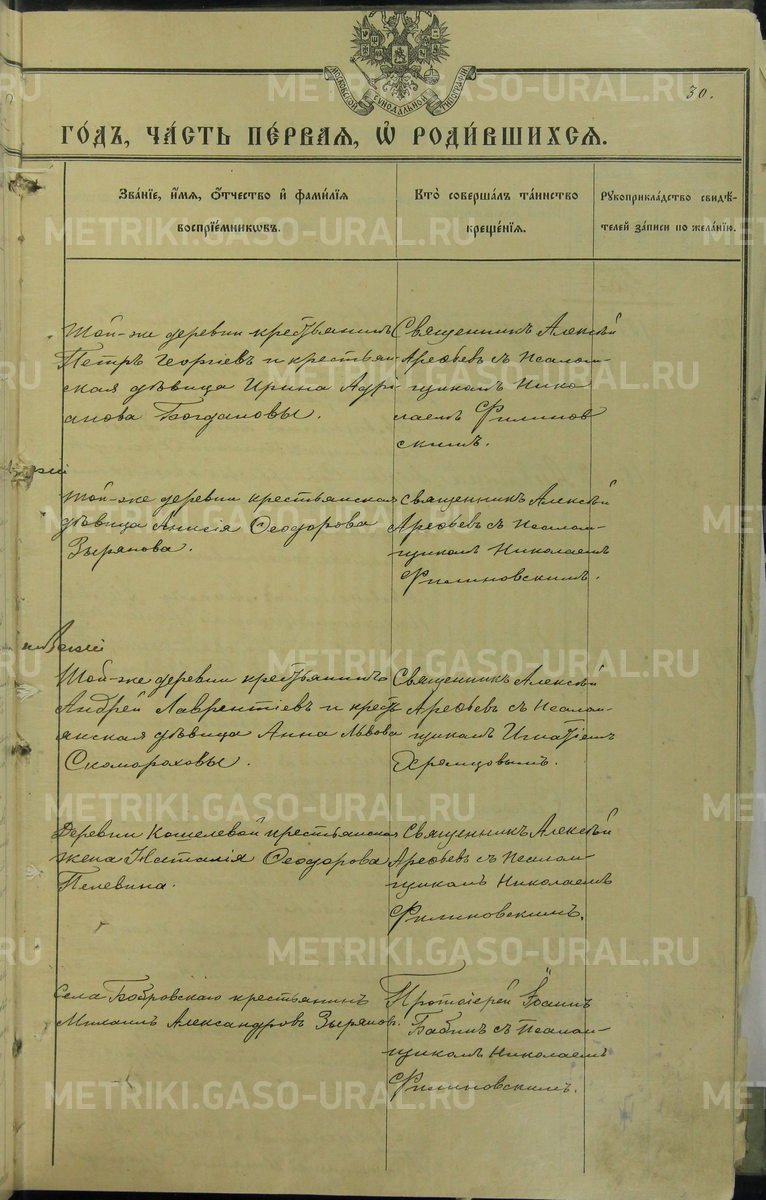 МОСКОВСКОЙ СѴНОДАЛЬНОЙ ТИПОГРАФІИ
30.
ГО́ДЪ, ЧА́СТЬ ПЕ́РВАЯ, Ѡ҆ РОДИ́ВШИХСЯ.
Зва́нїе, и҆́мя, ѻ҆́тчество и҆ фами́лїя
воспрїе́мникѡвъ.
Кто̀ соверша́лъ та́инство
креще́нїя.
Рꙋкоприкла́дство свидѣ́-
телей за́писи по жела́нїю.
Той-же деревни крестьянинъ
Петръ Георгіевъ и крестьян-
ская дѣвица Ирина Адрі-
анова Богдановы.
Священникъ Алексѣй
Арефьевъ съ Псалом-
щикомъ Нико
лаемъ Филинов
скимъ.
Той-же деревни крестьянская
дѣвица Анисія Ѳеодорова
Зырянова.
Священникъ Алексѣй
Арефьевъ съ Псалом-
щикомъ Николаемъ
Филиновскимъ.
Той-же деревни крестьянинъ
Андрей Лаврентіевъ и кресть
янская дѣвица Анна Львова
Скомороховы.
Священникъ Алексѣй
Арефьевъ съ Псалом-
щикомъ Игнатіемъ
Хремцовымъ.
Деревни Кошелевой крестьянская
жена Наталія Ѳеодорова
Пелевина.
Священникъ Алексѣй
Арефьевъ съ Псалом-
щикомъ Николаемъ
Филиновскимъ.
Села Бобровскаго крестьянинъ
Михаилъ Александровъ Зыряновъ.
Протоіерей Іоаннъ
Бабинъ съ Псалом-
щикомъ Николаемъ
Филиновскимъ.
METRIKI.GASO-URAL.RU